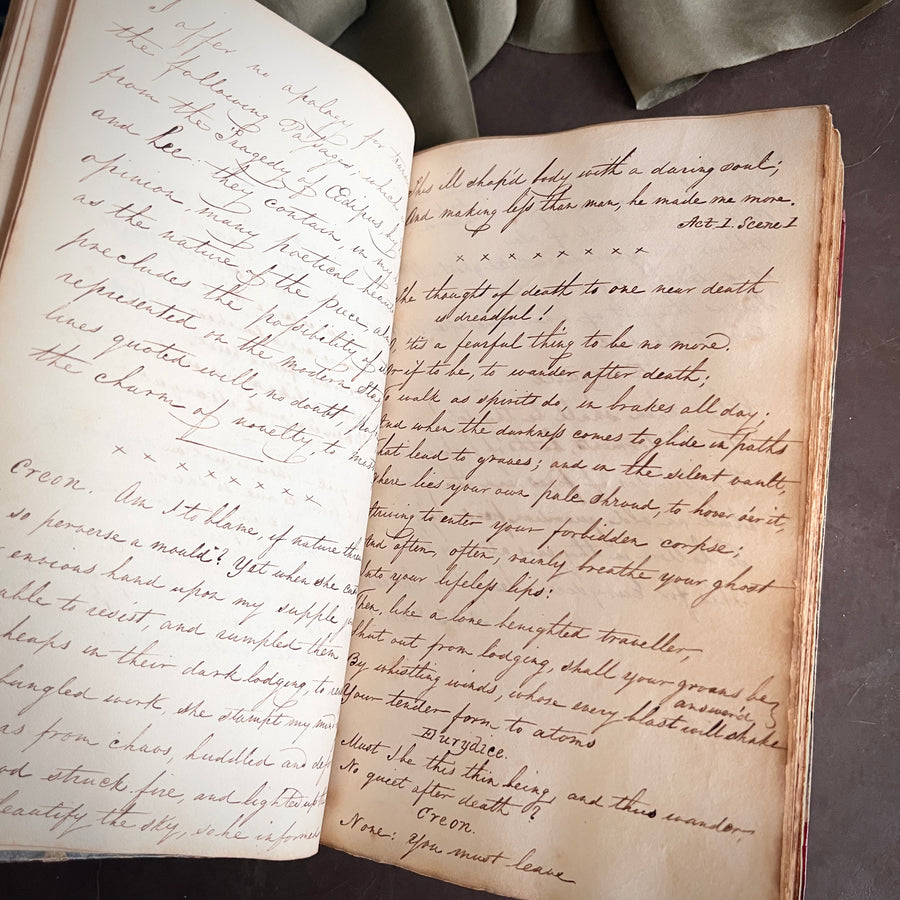 I offer no apology for
the following Passages, which
from the Tragedy of Œdipus, by
and Lee. they contain, in my
opinion, many poetical
as the nature of the piece,
precludes the poſsibility of
represented on the modern
lines quoted will, no doubt,
the charm of novelty, to
× × × × × × ×
Creon. Am I to blame, if nature
so perverse a mould? Yet when she
envious hand upon my supple
able to resist, and rumpled them
heaps in their dark lodging, to
bungled work, she stampt my
as from chaos, huddled and
struck fire, and lighted up
beautify the sky, so he informed
This ill shap'd body with a daring soul;
And making leſs than man, he made me more.
Act I. Scene I
× × × × × × × ×
The thought of death to one near death
is dreadful!
'tis a fearful thing to be no more.
Or if to be, to wander after death;
To walk as spirits do, in brakes all day;
And when the darkneſs comes to glide in paths
That lead to graves; and in the silent vault,
Where lies your own pale shroud, to hover o'er it,
Striving to enter your forbidden corpse;
And often, often, vainly breathe your ghost
Into your lifeleſs lips:
Then, like a lone benighted traveller,
Shut out from lodging, shall your groans be
answer'd
By whistling winds, whose every blast will shake
Your tender form to atoms
Eurydice.
Must I be this thin being, and thus wander,
No quiet after death?
Creon.
None: You must leave